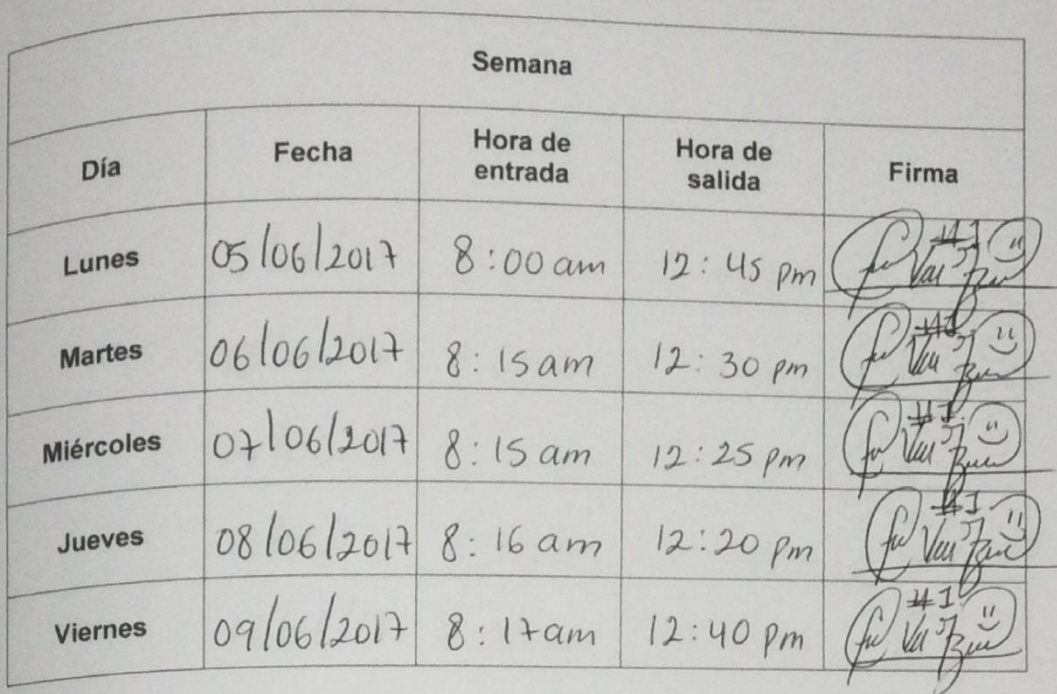 Semana
Día Fecha Hora de entrada Hora de salida Firma
Lunes 05/06/2017 8:00 am 12:45 pm #1
Martes 06/06/2017 8:15 am 12:30 pm #1
Miércoles 07/06/2017 8:15 am 12:25 pm #1
Jueves 08/06/2017 8:16 am 12:20 pm #1
Viernes 09/06/2017 8:17 am 12:40 pm #1